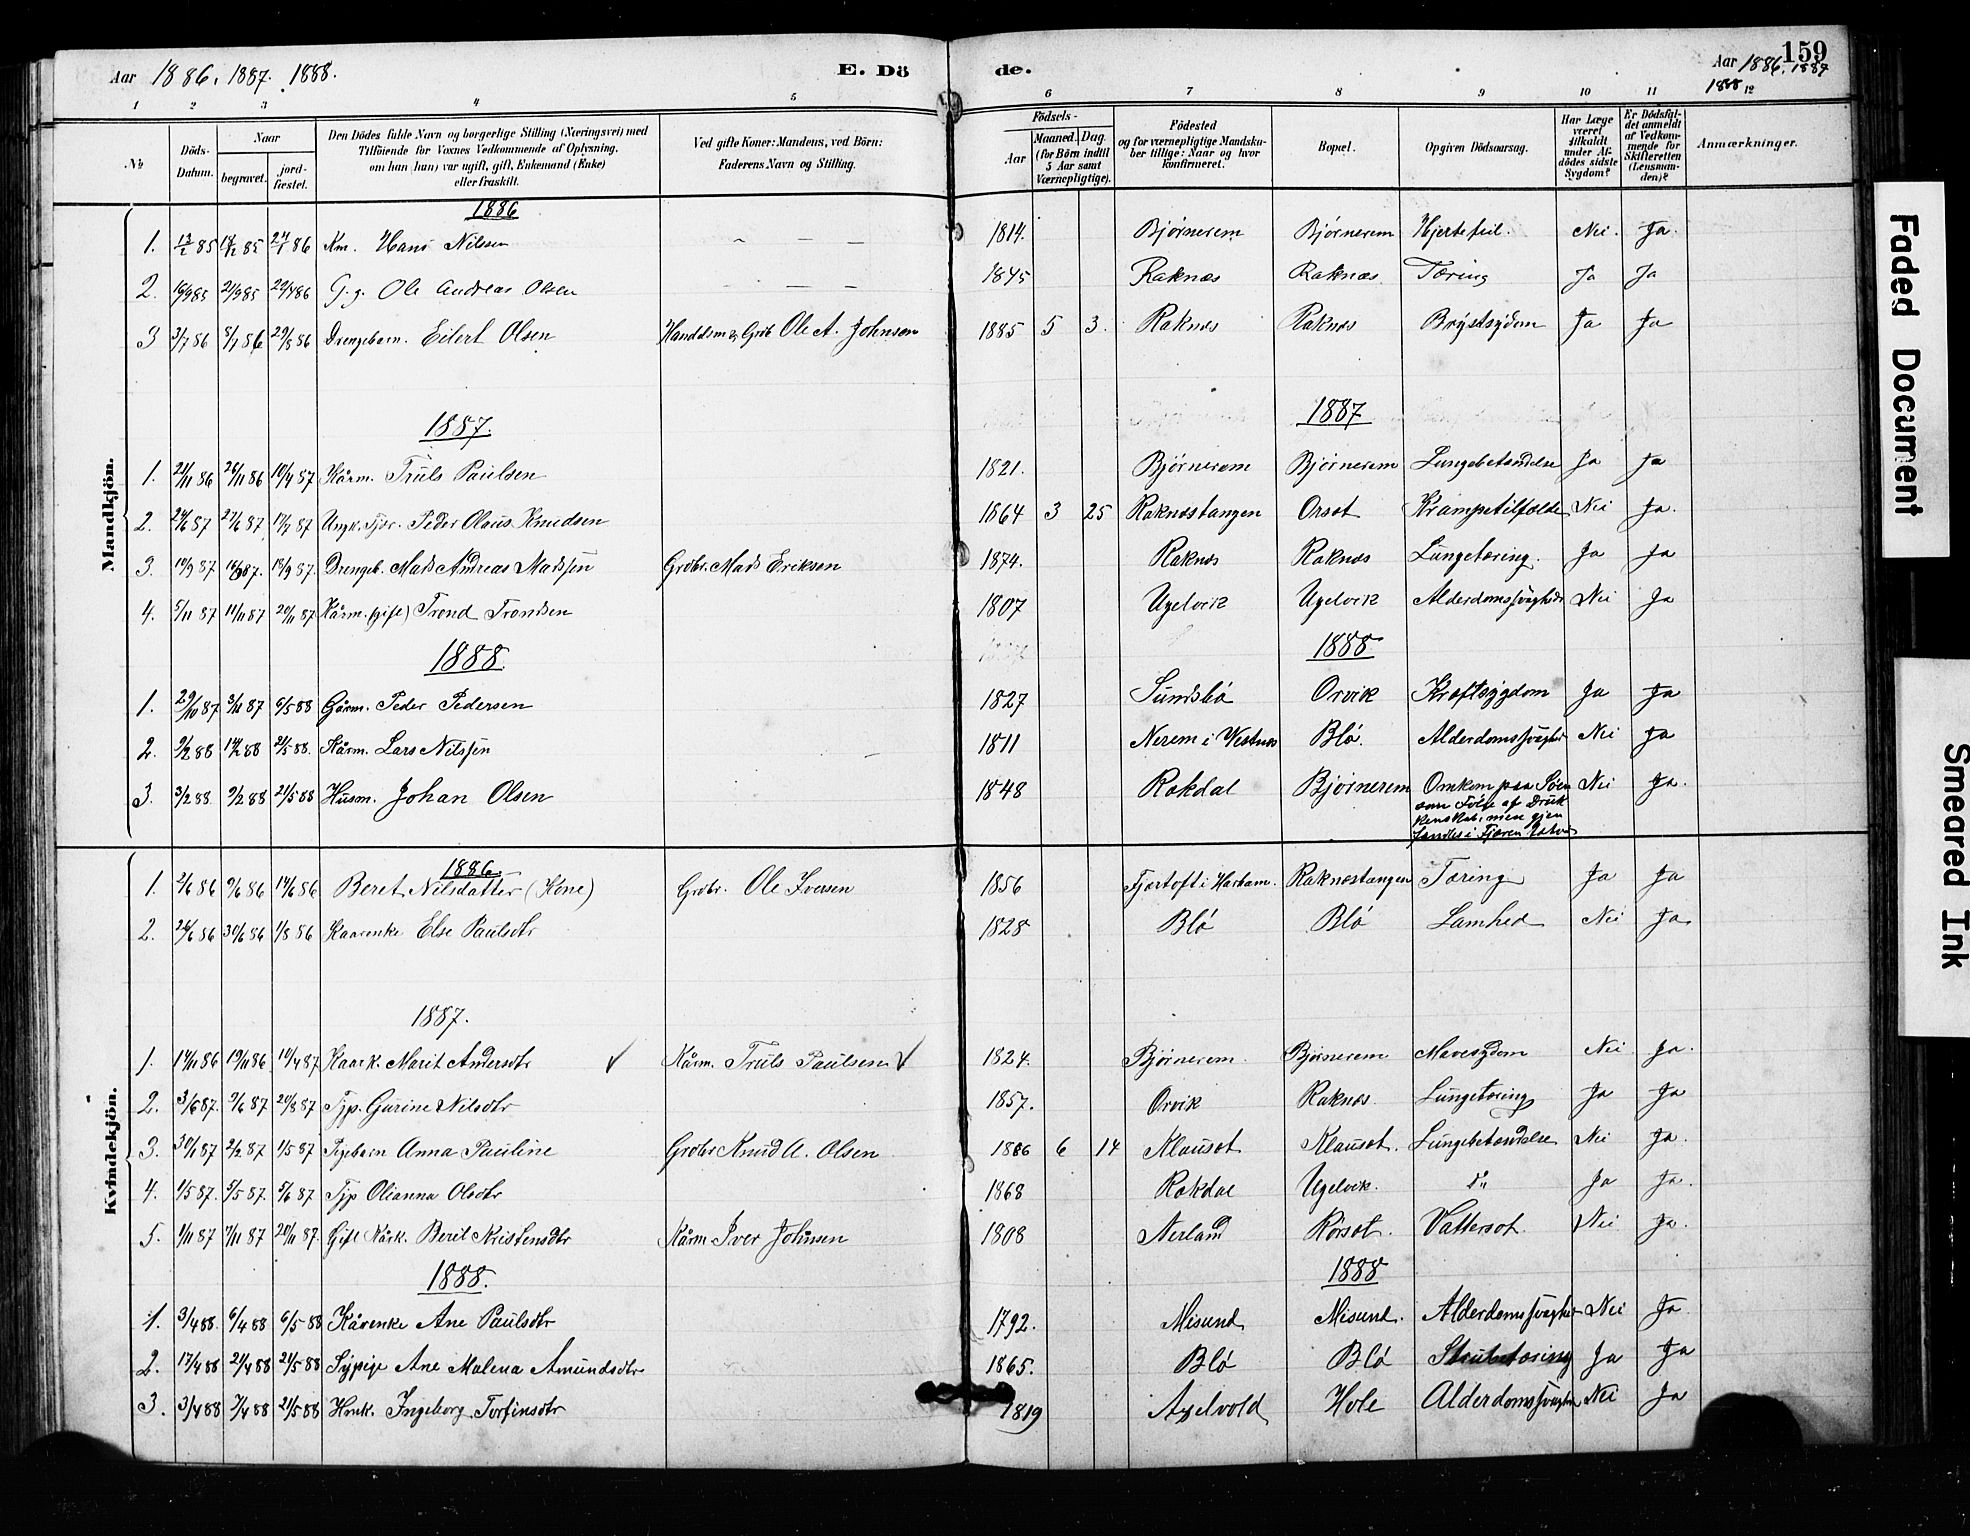 Aar 1886. 1887. 1888.
E. Dö de.
Aar 1886. 1887
1888
159
1 2 3 4 5 6 7 8 9 10 11 12
No
Döds-Datum.
Naar
begravet.
jordfæstet.
Den Dödes fulde Navn og borgerlige Stilling (Næringsvei) med Tilföiende for Voxnes Vedkommende af Oplysning, om han (hun) var ugift, gift, Enkemand (Enke) eller fraskilt.
Ved gifte Koner: Mandens, ved Börn: Faderens Navn og Stilling.
Födsels-
Aar
Maaned. Dag.
(for Börn indtil 5 Aar samt Værnepligtige).
Födested og for værnepligtige Mandskaber tillige: Naar og hvor konfirmeret.
Bopæl.
Opgiven Dödsaarsag.
Har Læge været tilkaldt under Afdödes sidste Sygdom?
Er Dödsfaldet anmeldt af Vedkommende for Skifteretten (Lensmanden)?
Anmærkninger.
Mandkjön.
1886
1. 85 85 86 Km. Hans Nilsen — — 1814. Bjørnerem Bjørnerem Hjertefeil. Nei. Ja.
2. 16/9 85 21/9 85 29/4 86 G.g. Ole Andreas Olsen — — — 1845 Raknæs Raknæs Tæring Ja Ja
3 3/7 86 8/7 86 29/8 86 Drengebarn. Eilert Olsen Handelsm & Grdb Ole A. Johnsen 1885 5 3. Raknæs Raknæs Brystsygdom Ja Ja
1887. 1887
1. 21/11 86 26/11 86 10/4 87 Kårm. Truls Paulsen 1821. Bjørnerem Bjørnerem Lungebetændelse Ja Ja
2. 24/6 87 27/6 87 17/7 87 Ungk. Tjgr. Peder Olaus Knudsen 1864 3 25 Raknæstangen Orset Krampetilfælde Nei Ja.
3. 10/9 87 87. 19/9 87. Drengeb. Mads Andreas Madssen Grdbr. Mads Eriksen 1874. Raknæs Raknæs Lungetæring. Ja Ja
4. 5/11 87 11/11 87 20/11 87 Kårm. (gift) Trond Trondsen 1807 Ugelvik Ugelvik Alderdomssvaghed Nei Ja
1888. 1888
1. 29/10 87 3/11 87 6/5 88 Gårm. Peder Pedersen 1827 Sundsbö Orvik Kræftsygdom Ja Ja
2. 9/2 88 14/2 88 21/5 88. Kårm. Lars Nilssen 1811 Nerem i Vestnæs Blø. Alderdomssvaghed Nei Ja
3. 3/2 88. 9/2 88 21/5 88 Husm. Johan Olsen 1848 Rakdal Bjørnerem Omkom paa Søen Nei Ja.
som Følge af Druk
kenskab, men gjen
fandtes i Fjæren
Kvindekjön.
1886.
1. 2/6 86 9/6 86 14/6 86 Beret Nilsdatter (Kone) Grdbr. Ole Iversen 1856 Fjærtoft i Harham. Raknæstangen Tæring Ja Ja
2. 24/6 86 30/6 86 1/8 86 Kaarenke Else Paulsdtr 1828 Blø Blø Lamhed Nei Ja
1887.
1. 14/11 86 19/11 86 10/4 87 Kaark. Marit Andersdtr ✓ Kårm. Truls Paulsen ✓ 1824. Bjørnerem Bjørnerem Mavesygdom Nei Ja.
2. 3/6 87. 9/6 87 20/8 87 Tjp. Gurine Nilsdtr 1857. Orvik Raknæs. Lungetæring Ja Ja
3. 30/1 87 2/2 87 1/5 87 Pigebarn Anna Pauline Grdbr Knud A. Olsen 1886 6 14 Klauset Klauset. Lungebetændelse Nei Ja.
4. 1/5 87. 5/5 87. 5/6 87 Tjp Olianna Olsdtr 1868 Rakdal Ugelvik. Do Ja Ja.
5. 1/11 87 7/11 87 20/11 87. Gift Kårk. Berit Kristensdtr Kårm Iver Johnsen 1808 Nerland Rørset. Vattersot. Nei Ja.
1888. 1888
1. 3/4 88. 6/4 88 6/5 88 Kårenke Ane Paulsdtr 1792. Misund Misund. Alderdomssvaghed Nei Ja.
2. 17/4 88 21/4 88 21/5 88 Sypige Ane Malena Amundsdtr 1865. Blø Blø Strubetæring Ja Ja
3. 3/4 88 7/4 88 21/5 88 Hmk. Ingeborg Torfinsdtr 1819 Axelvold Hole Alderdomssvaghed Nei Ja
Faded Document
Smeared Ink